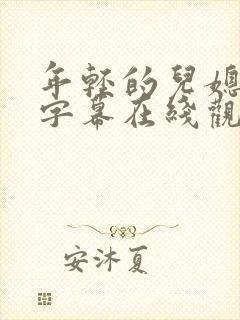 年輕的兒媳
字幕在綫觀
安沐夏